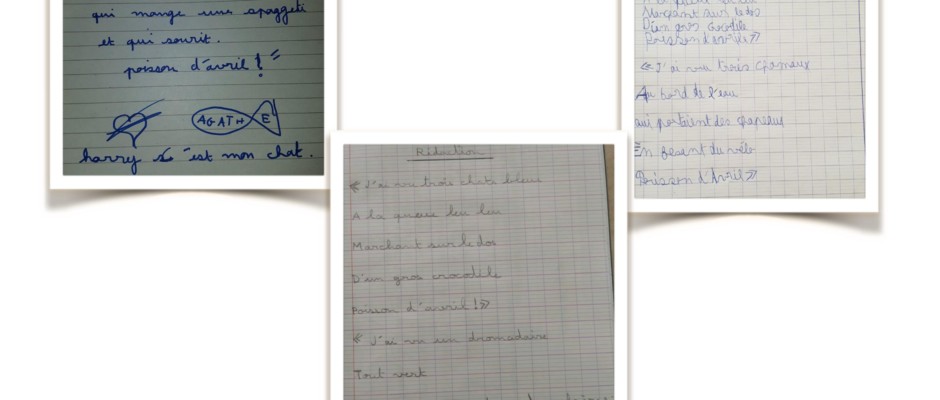 qui mange une spaggeti
et qui sourit.
poisson d'avril !
AGATHE
harry c'est mon chat.
Rédaction
« J'ai vu trois chats bleus
A la queue leu leu
Marchant sur le dos
D'un gros crocodile
Poisson d'avril !»
« J'ai vu un dromadaire
Tout vert
Marchant sur le dos
D'un gros crocodile
Poisson d'avril »
« J'ai vu trois chameaux
Au bord de l'eau
qui portaient des chapeaux
En fesent du vélo
Poisson d'Avril »